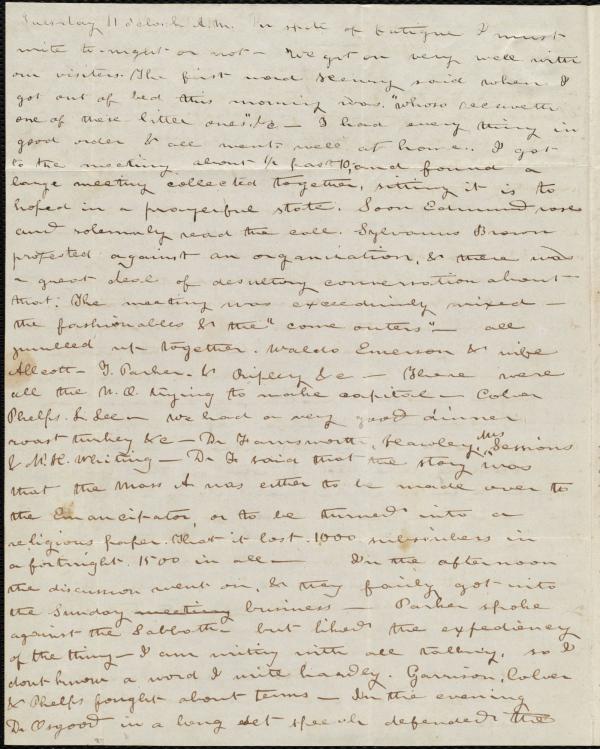 Tuesday 11 o'clock A.M. In spite of fatigue I must
write to-night or not - We got on very well with
our visitors. The first word said when I
got out of bed this morning was. "Whoso receiveth
one of these little ones", &c - I had every thing in
good order & all went well at home. I got
to the meeting about 1/2 past 10, and found a
large meeting collected together, sitting it is to
hoped in a prayerful state. Soon Edmund rose
and solemnly read the call. Sylvanus Brown
protested against an organization, & there was
a great deal of desultory conversation about
that: The meeting was exceedingly mixed -
the fashionables & the "come outers" - all
jumbled up together. Waldo Emerson & wife
Allcott - T. Parker. & Ripley &c - There were
all the N.O. trying to make capital - Colver
Phelps. & Lee - We had a very good dinner
roast turkey &c - Dr Farnsworth, Hawley, Mrs Sessions
& Mr. H. Whiting - Dr F said that the story was
that the Mass A was either to be made over to
the Emancipator, or to be turned into a
religious paper. That it lost 1000 subscribers in
a fortnight. 1500 in all - In the afternoon
the discussion went on, & they fairly got into
the Sunday meeting business - Parker spoke
against the Sabbath - but liked the expediency
of the thing - I am writing with all talking, so I
dont know a word I write hardly. Garrison, Colver
& Phelps fought about terms - In the evening
Dr Osgood in a long set speech defended the